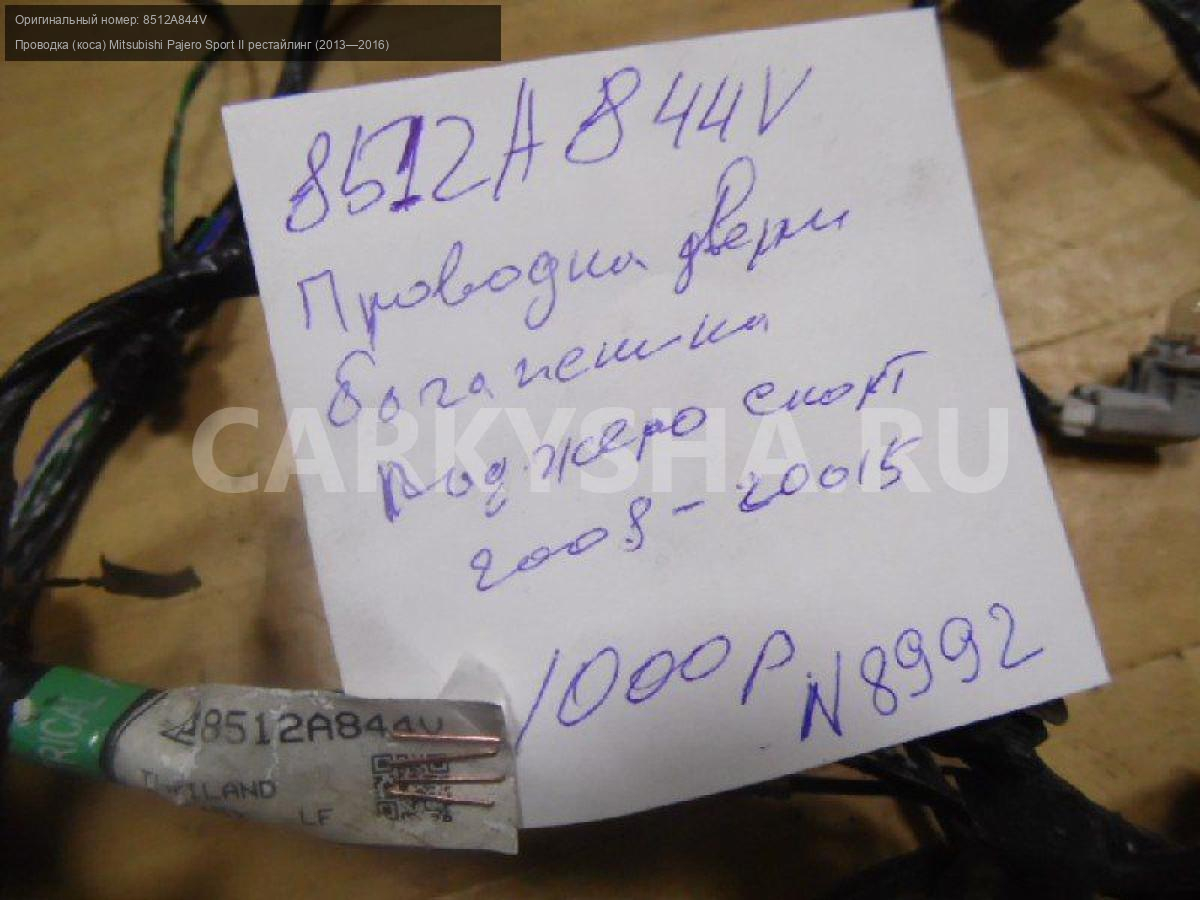 Оригинальный номер: 8512A844V
Проводка (коса) Mitsubishi Pajero Sport II рестайлинг (2013—2016)
8512A844V
Проводка двери
багажника
паджеро спорт
2008-20015
1000р
N8992
CARKYSHA.RU
RICAL
8512A844V
THAILAND
LF